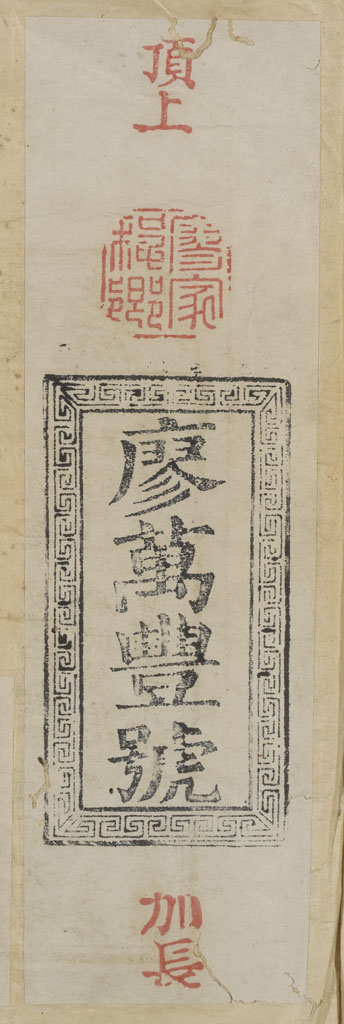 頂上
廖家
廖萬豐號
加長